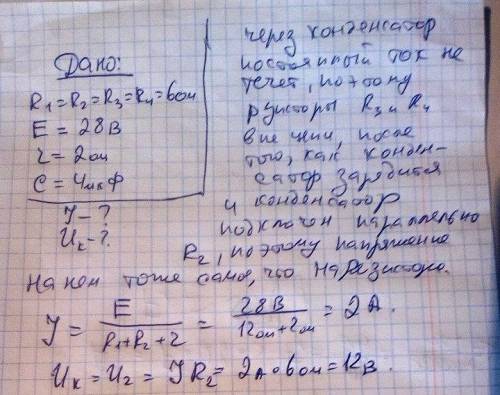 Дано:
R1=R2=R3=R4=6ом
E = 28В
r = 2ом
C = 4мкФ
J - ?
Uк - ?
через конденсатор
постоянный ток не
течет, поэтому
резисторы R3 и R4
вне цепи, после
того, как конден-
сатор зарядится
и конденсатор
подключен параллельно
R2, поэтому напряжение
на нем тоже самое, что на резисторе.
J = E / (R1+R2+r) = 28В / (12ом+2ом) = 2А.
Uк = U2 = JR2 = 2А∘6ом=12В.